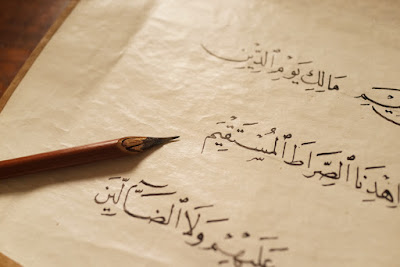 مَالِكِ يَوْمِ ٱلدِّينِ
ٱهْدِنَا ٱلصِّرَاطَ ٱلْمُسْتَقِيمَ
عَلَيْهِمْ وَلَا ٱلضَّآلِّينَ